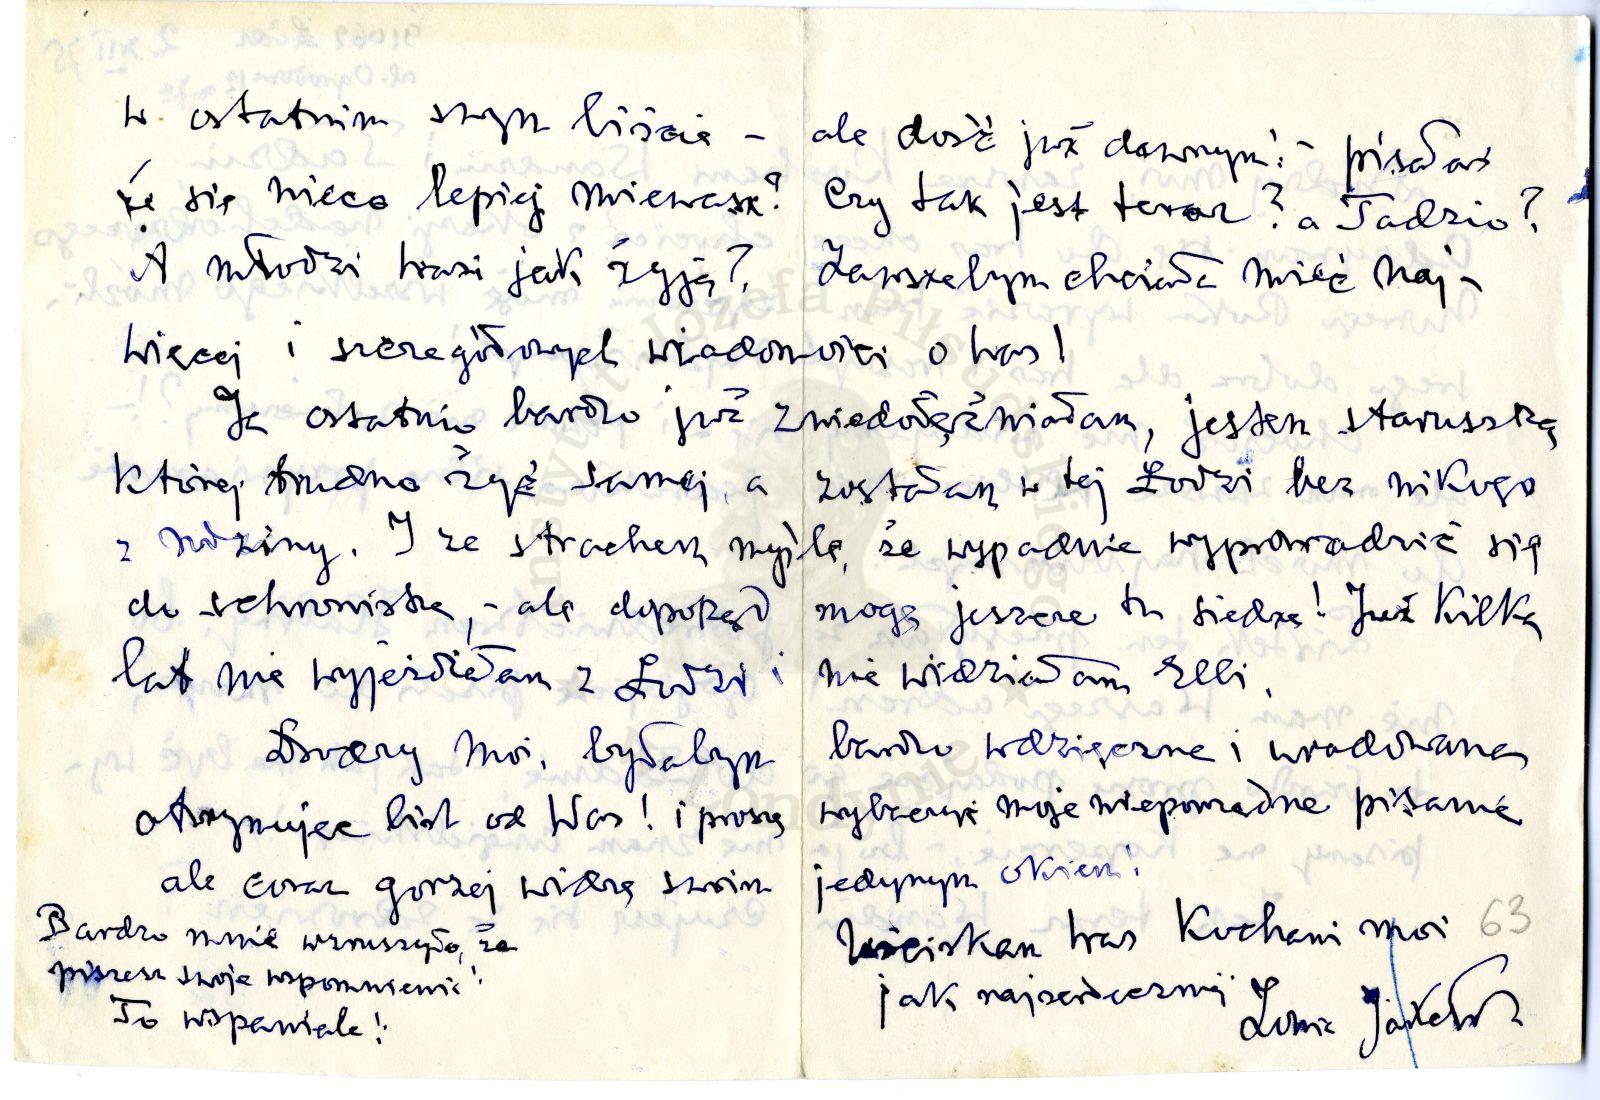 w ostatnim swym liście – ale dość już dawnym! – pisałaś
że się nieco lepiej miewasz? Czy tak jest teraz? a Tadzio?
A młodzi Wasi jak żyją? Zawszebym chciała mieć naj-
więcej i szczegółowych wiadomości o Was!
Ja ostatnio bardzo już zniedołężniałam, jestem staruszką
której trudno żyć samej, a zostałam w tej Łodzi bez nikogo
z rodziny. I ze strachem myślę, że wypadnie wyprowadzić się
do schroniska, – ale dopokąd mogę jeszcze tu siedzę! Już kilka
lat nie wyjeżdżałam z Łodzi i nie widziałam Elli.
Drodzy moi, byłabym bardzo wdzięczna i uradowana
otrzymując list od Was! i proszę wybaczyć moje nieporadne pisanie
ale coraz gorzej widzę swoim jedynym okiem!
Uściskam Was Kochani moi
jak najserdeczniej
63
Bardzo mnie wzruszyło, że
piszesz swoje wspomnienia!
To wspaniale!
Instytut Józefa Piłsudskiego
w Londynie